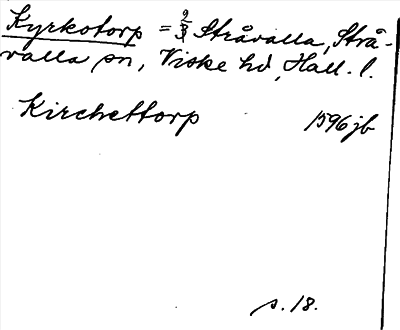 Kyrkotorp = Stråvalla, Strå-
valla sn, Viske hd, Hall. l.
Kirchettorp 1596 jb
s. 18.